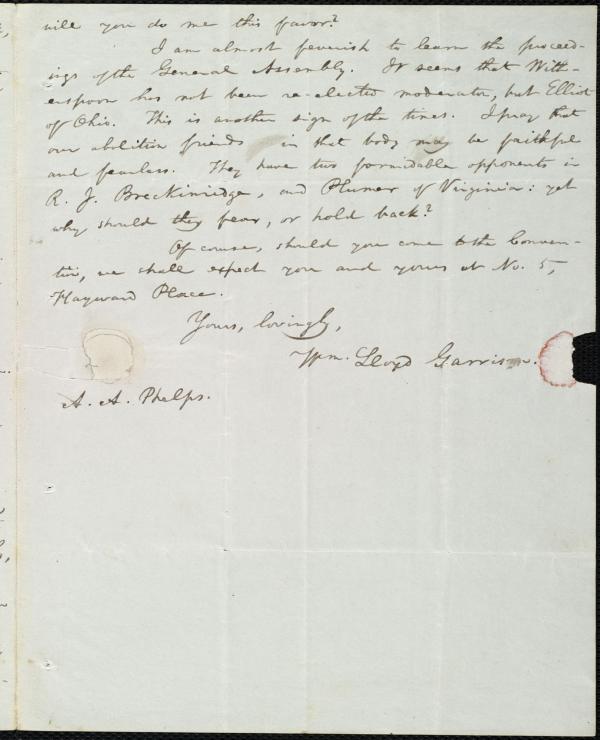 will you do me this favor?
I am almost feverish to learn the proceed-
ings of the General Assembly. It seems that With-
erspoon has not been re-elected moderator, but Elliot
of Ohio. This is another sign of the times. I pray that
our abolition friends in that body may be faithful
and fearless. They have two formidable opponents in
R. J. Breckinridge, and Plumer of Virginia: yet
why should they fear, or hold back?
Of course, should you come to the Conven-
tion, we shall expect you and yours at No. 5,
Hayward Place.
Yours, lovingly,
Wm. Lloyd Garrison.
A. A. Phelps.